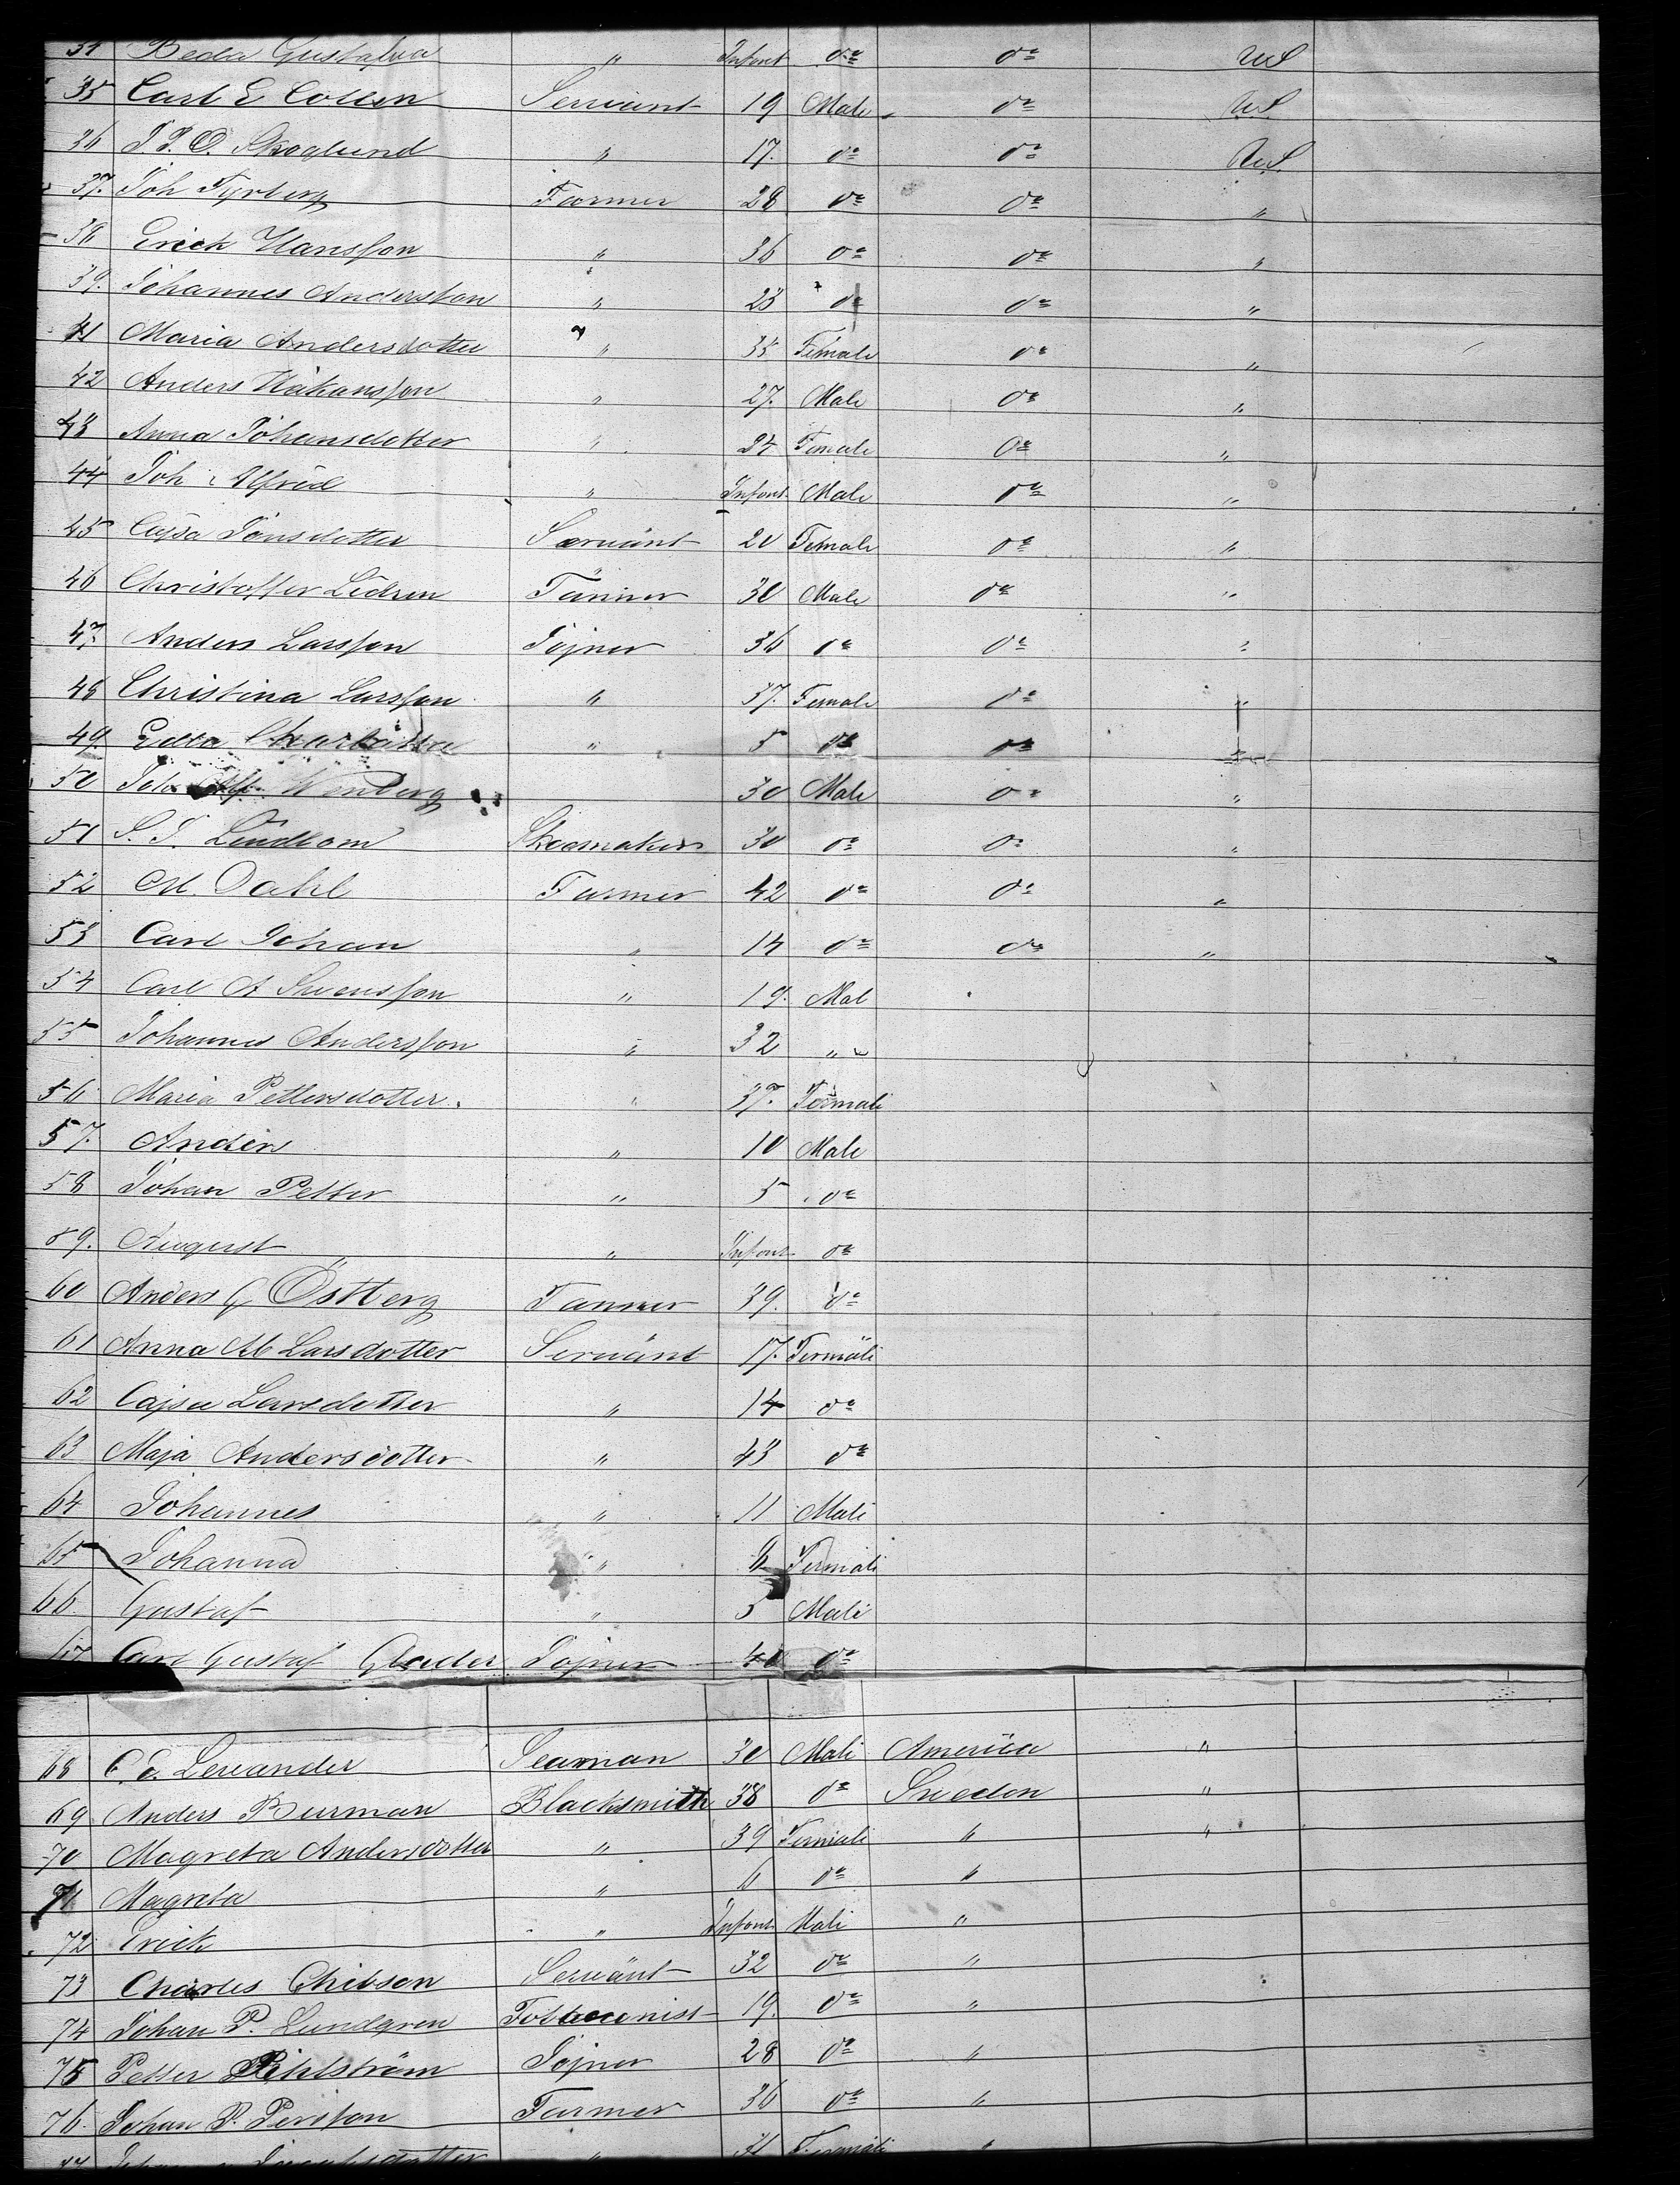 34 Beda Gustafva " Infant do do US
35 Carl E Collin Servant 19 Male do US
36 J. P. O. Skoglund " 17. do do US
37. Joh Tyrberg Farmer 28 do do "
38 Erick Hansson " 36 do do "
39. Johannes Andersson " 23 do do "
41 Maria Andersdotter " 35 Female do "
42 Anders Håkansson " 27. Male do "
43 Anna Johansdotter " 24 Female do "
44 Joh Alfred " Infant Male do "
45 Cajsa Jönsdotter Servant 20 Female do "
46 Christoffer Lidren Tanner 30 Male do "
47. Anders Larsson Jojner 36 do do "
48 Christina Larsson " 37. Female do "
49. Charlotta " 5 do do "
50 Joh Alf. Wenberg 30 Male do "
51 S. J. Lindbom Shoemaker 30 do do "
52 M. Dahl Farmer 42 do do "
53 Carl Johan " 14 do do "
54 Carl A Svensson " 19. Mal
55 Johannes Andersson " 32 "
56 Maria Pettersdotter. " 37. Femali
57. Anders " 10 Male
58 Johan Petter " 5 do
59. August " Infant do
60 Anders G Östberg Tanner 39. do
61 Anna M Larsdotter Servant 17. Femäli
62 Cajsa Larsdotter " 14 do
63 Maja Andersdotter " 43 do
64 Johannes " 11 Mali
65 Johanna " Femäli
66. Gustaf " 5 Mali
67 Carl Gustaf Glader Jojner 40 do
68 C. E. Levander Seaman 30 Mali America "
69 Anders Burman Blacksmith 38 do Sweden "
70 Magreta Andersdotter " 39 Femali " "
71 Magreta " 6 do "
72 Erick " Infant Mali "
73 Charles Chibson Servänt 32 do "
74 Johan P. Lundgren Tobacconist 19. do "
75 Petter Pihlström Jojner 28 do "
76. Johan P. Persson Farmer 36 do "
77 " Femäli "